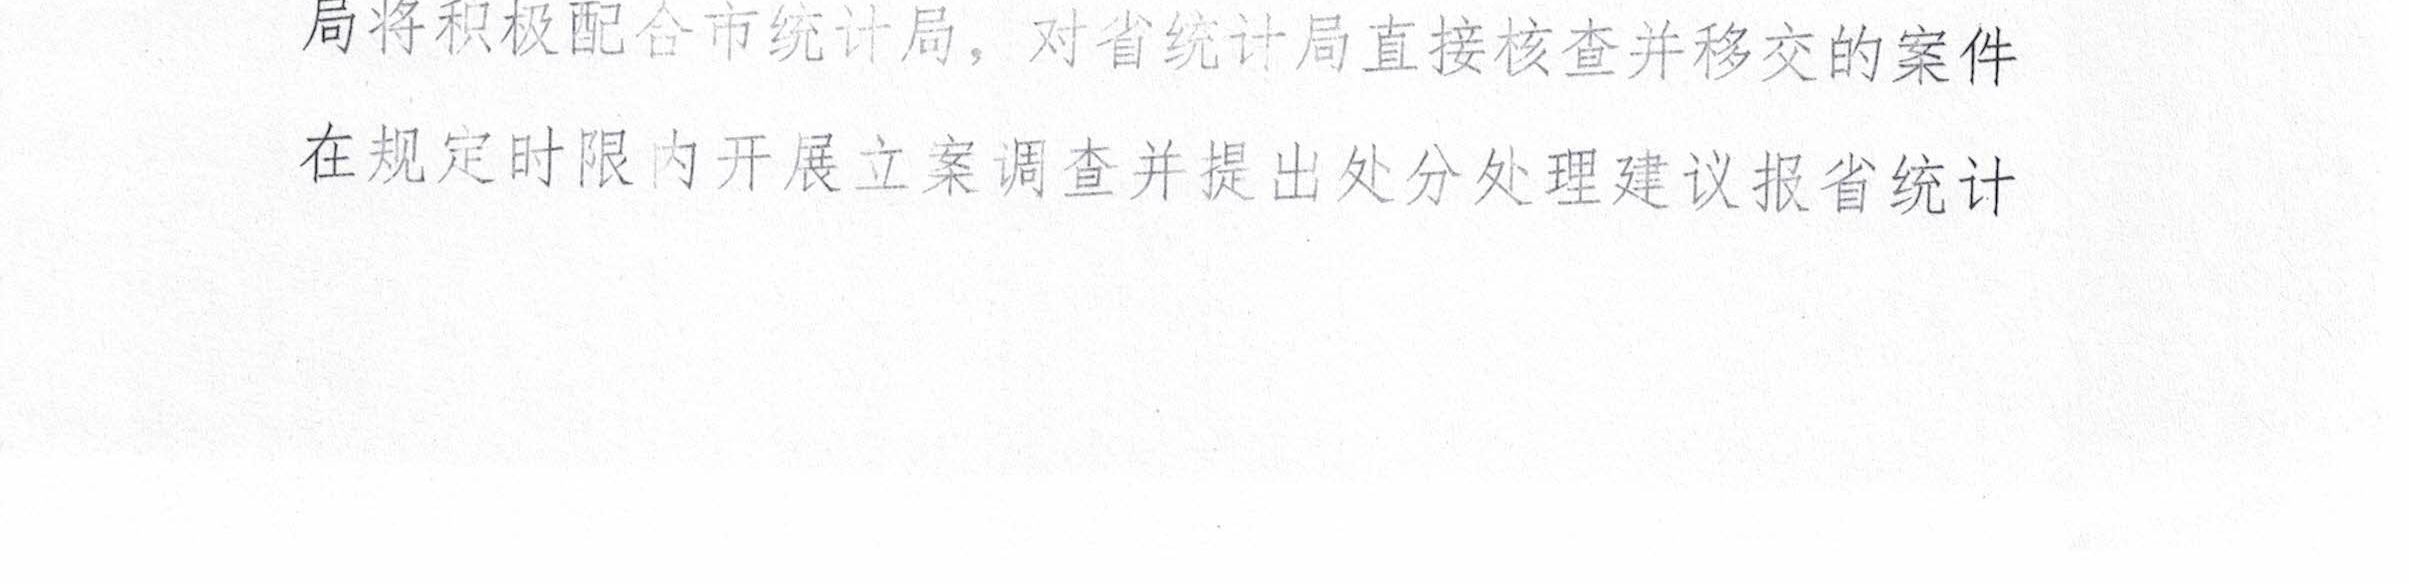 局将积极配合市统计局，对省统计局直接核查并移交的案件
在规定时限内开展立案调查并提出处分处理建议报省统计